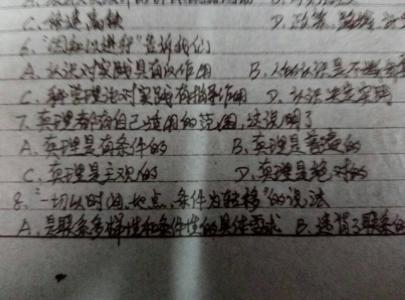 C. 促进高校 D. 政策
6. "因知以进行"告诉我们
A. 认识对实践具有反作用 B. 人的认识是不断
C. 科学理论对实践有指导作用 D. 认识决定实践
7. 真理都有自己适用的范围,这说明了
A. 真理是有条件的 B. 真理是普遍的
C. 真理是主观的 D. 真理是绝对的
8. "一切以时间、地点、条件为转移"的说法
A. 是联系多样性和条件性的具体要求 B. 违背了联系的